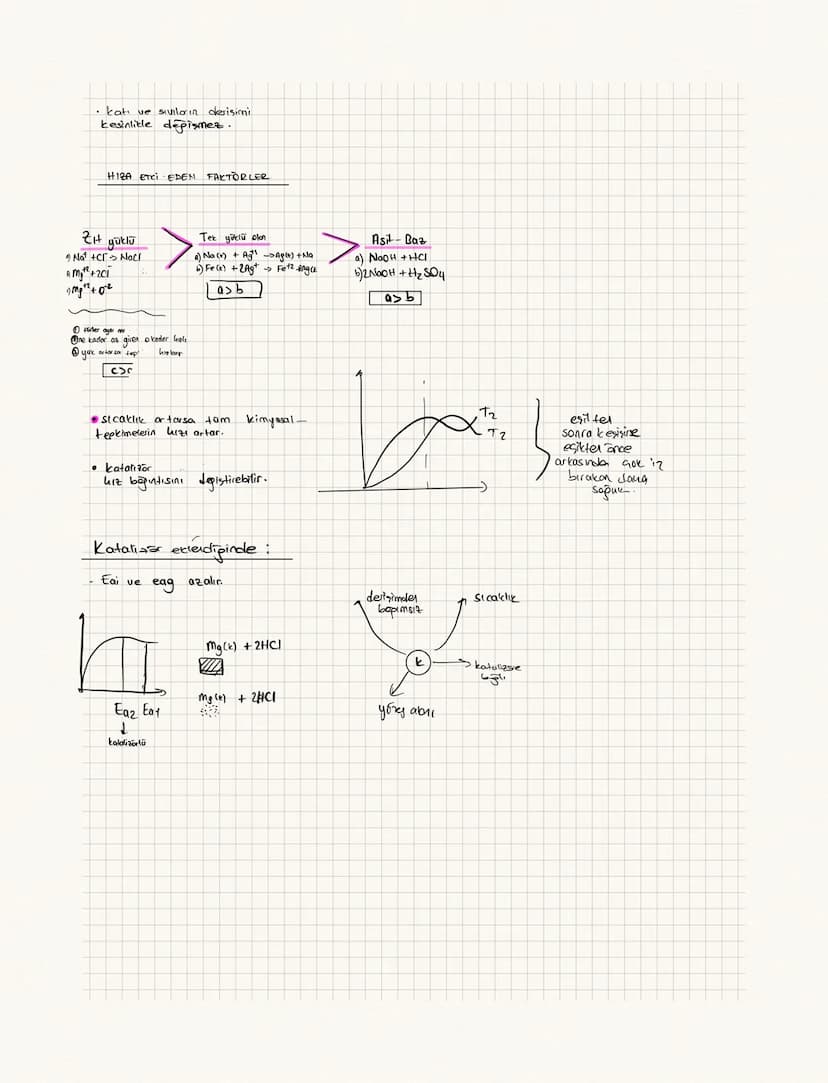 · katı ve sıvıların derişimi
kesinlikle değişmez.
HIZA ETKİ EDEN FAKTÖRLER
Zıt yüklü
Na⁺ + Cl⁻ → NaCl
Mg⁺² + 2Cl⁻
Mg⁺² + O⁻²
> Tek yüklü olan
a) Na(k) + Ag⁺¹ → Ag(k) + Na
b) Fe(k) + 2Ag⁺ → Fe⁺²
a>b
> Asit-Baz
a) NaOH + HCl
b) 2NaOH + H₂SO₄
a>b
① aynı
② ne kadar az giren o kadar hızlı
③ yük artarsa
• sıcaklık artarsa tüm kimyasal
tepkimelerin hızı artar.
• katalizör
hız bağıntısını değiştirebilir.
T₂
T₂
eşikten
sonra kesişirse
eşikten önce
arkasından çok iz
bırakan daha
soğuk.
Katalizör eklendiğinde :
- Eai ve eag azalır.
Ea2 Ea1
↓
katalizörlü
Mg(k) + 2HCl
Mg(k) + 2HCl
derişimden
bağımsız
sıcaklık
k
katalizöre
bağlı
yüzey alanı